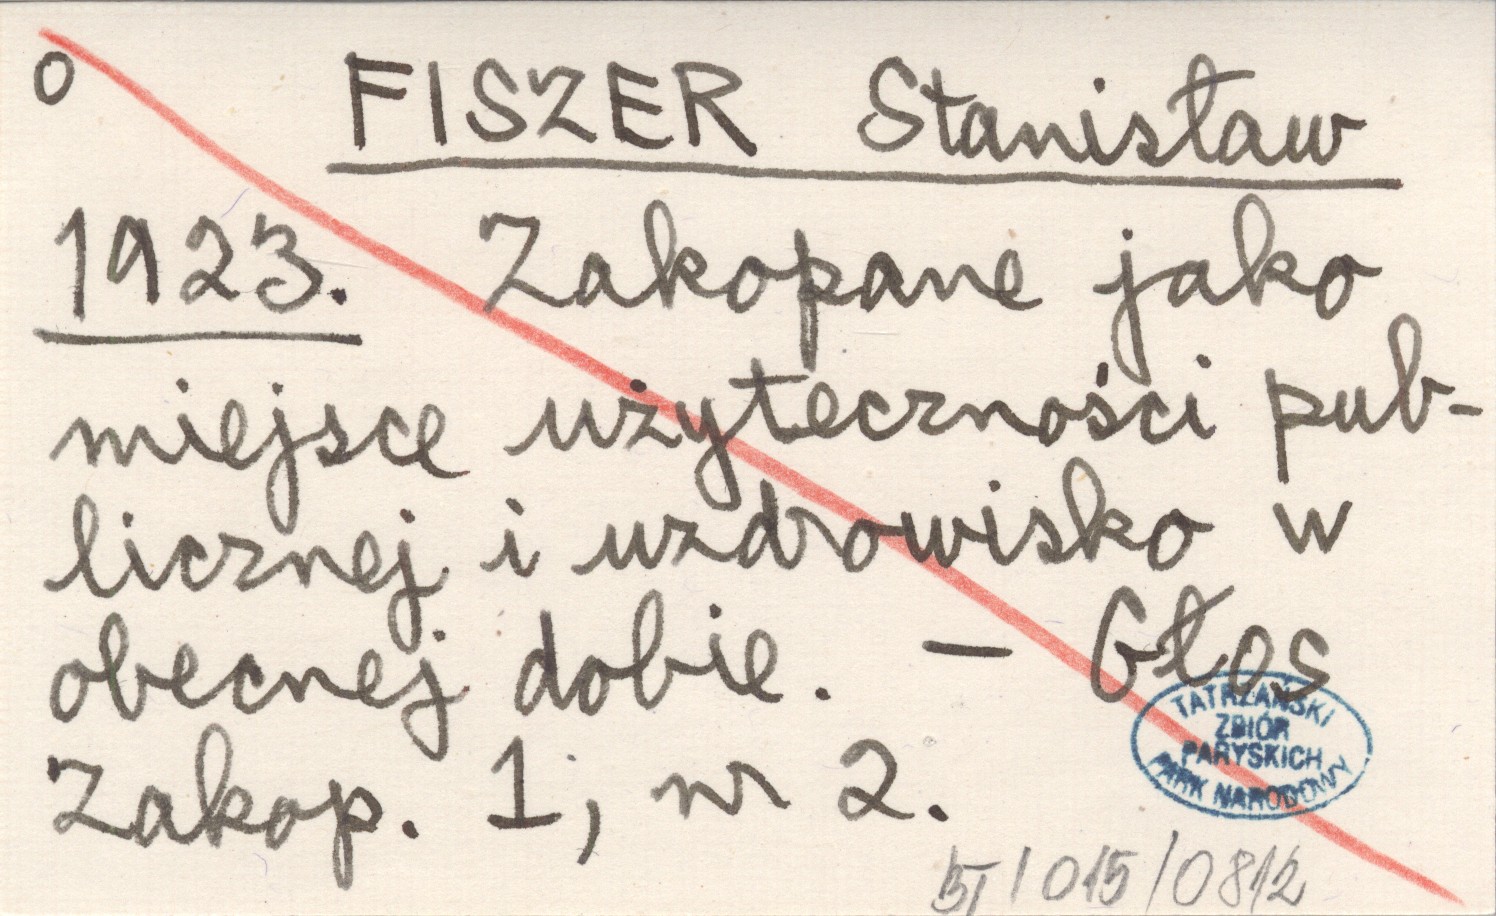 o FISZER Stanisław
1923. Zakopane jako
miejsce użyteczności pub-
licznej i uzdrowisko w
obecnej dobie. — Głos
Zakop. 1, nr 2.
TATRZAŃSKI
ZBIÓR
PARYSKICH
PARK NARODOWY
/015/0812